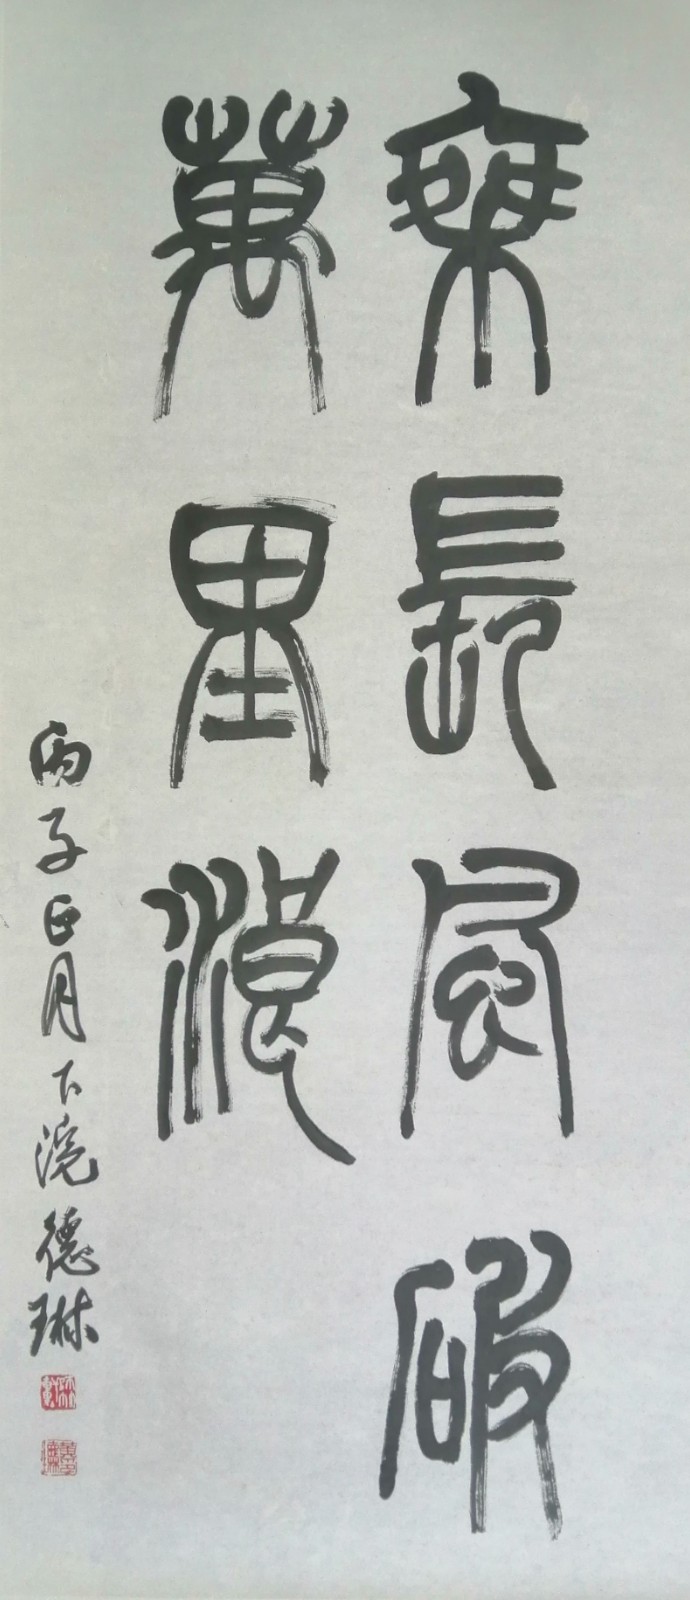 乘長風破
萬里浪
丙子正月下浣德琳